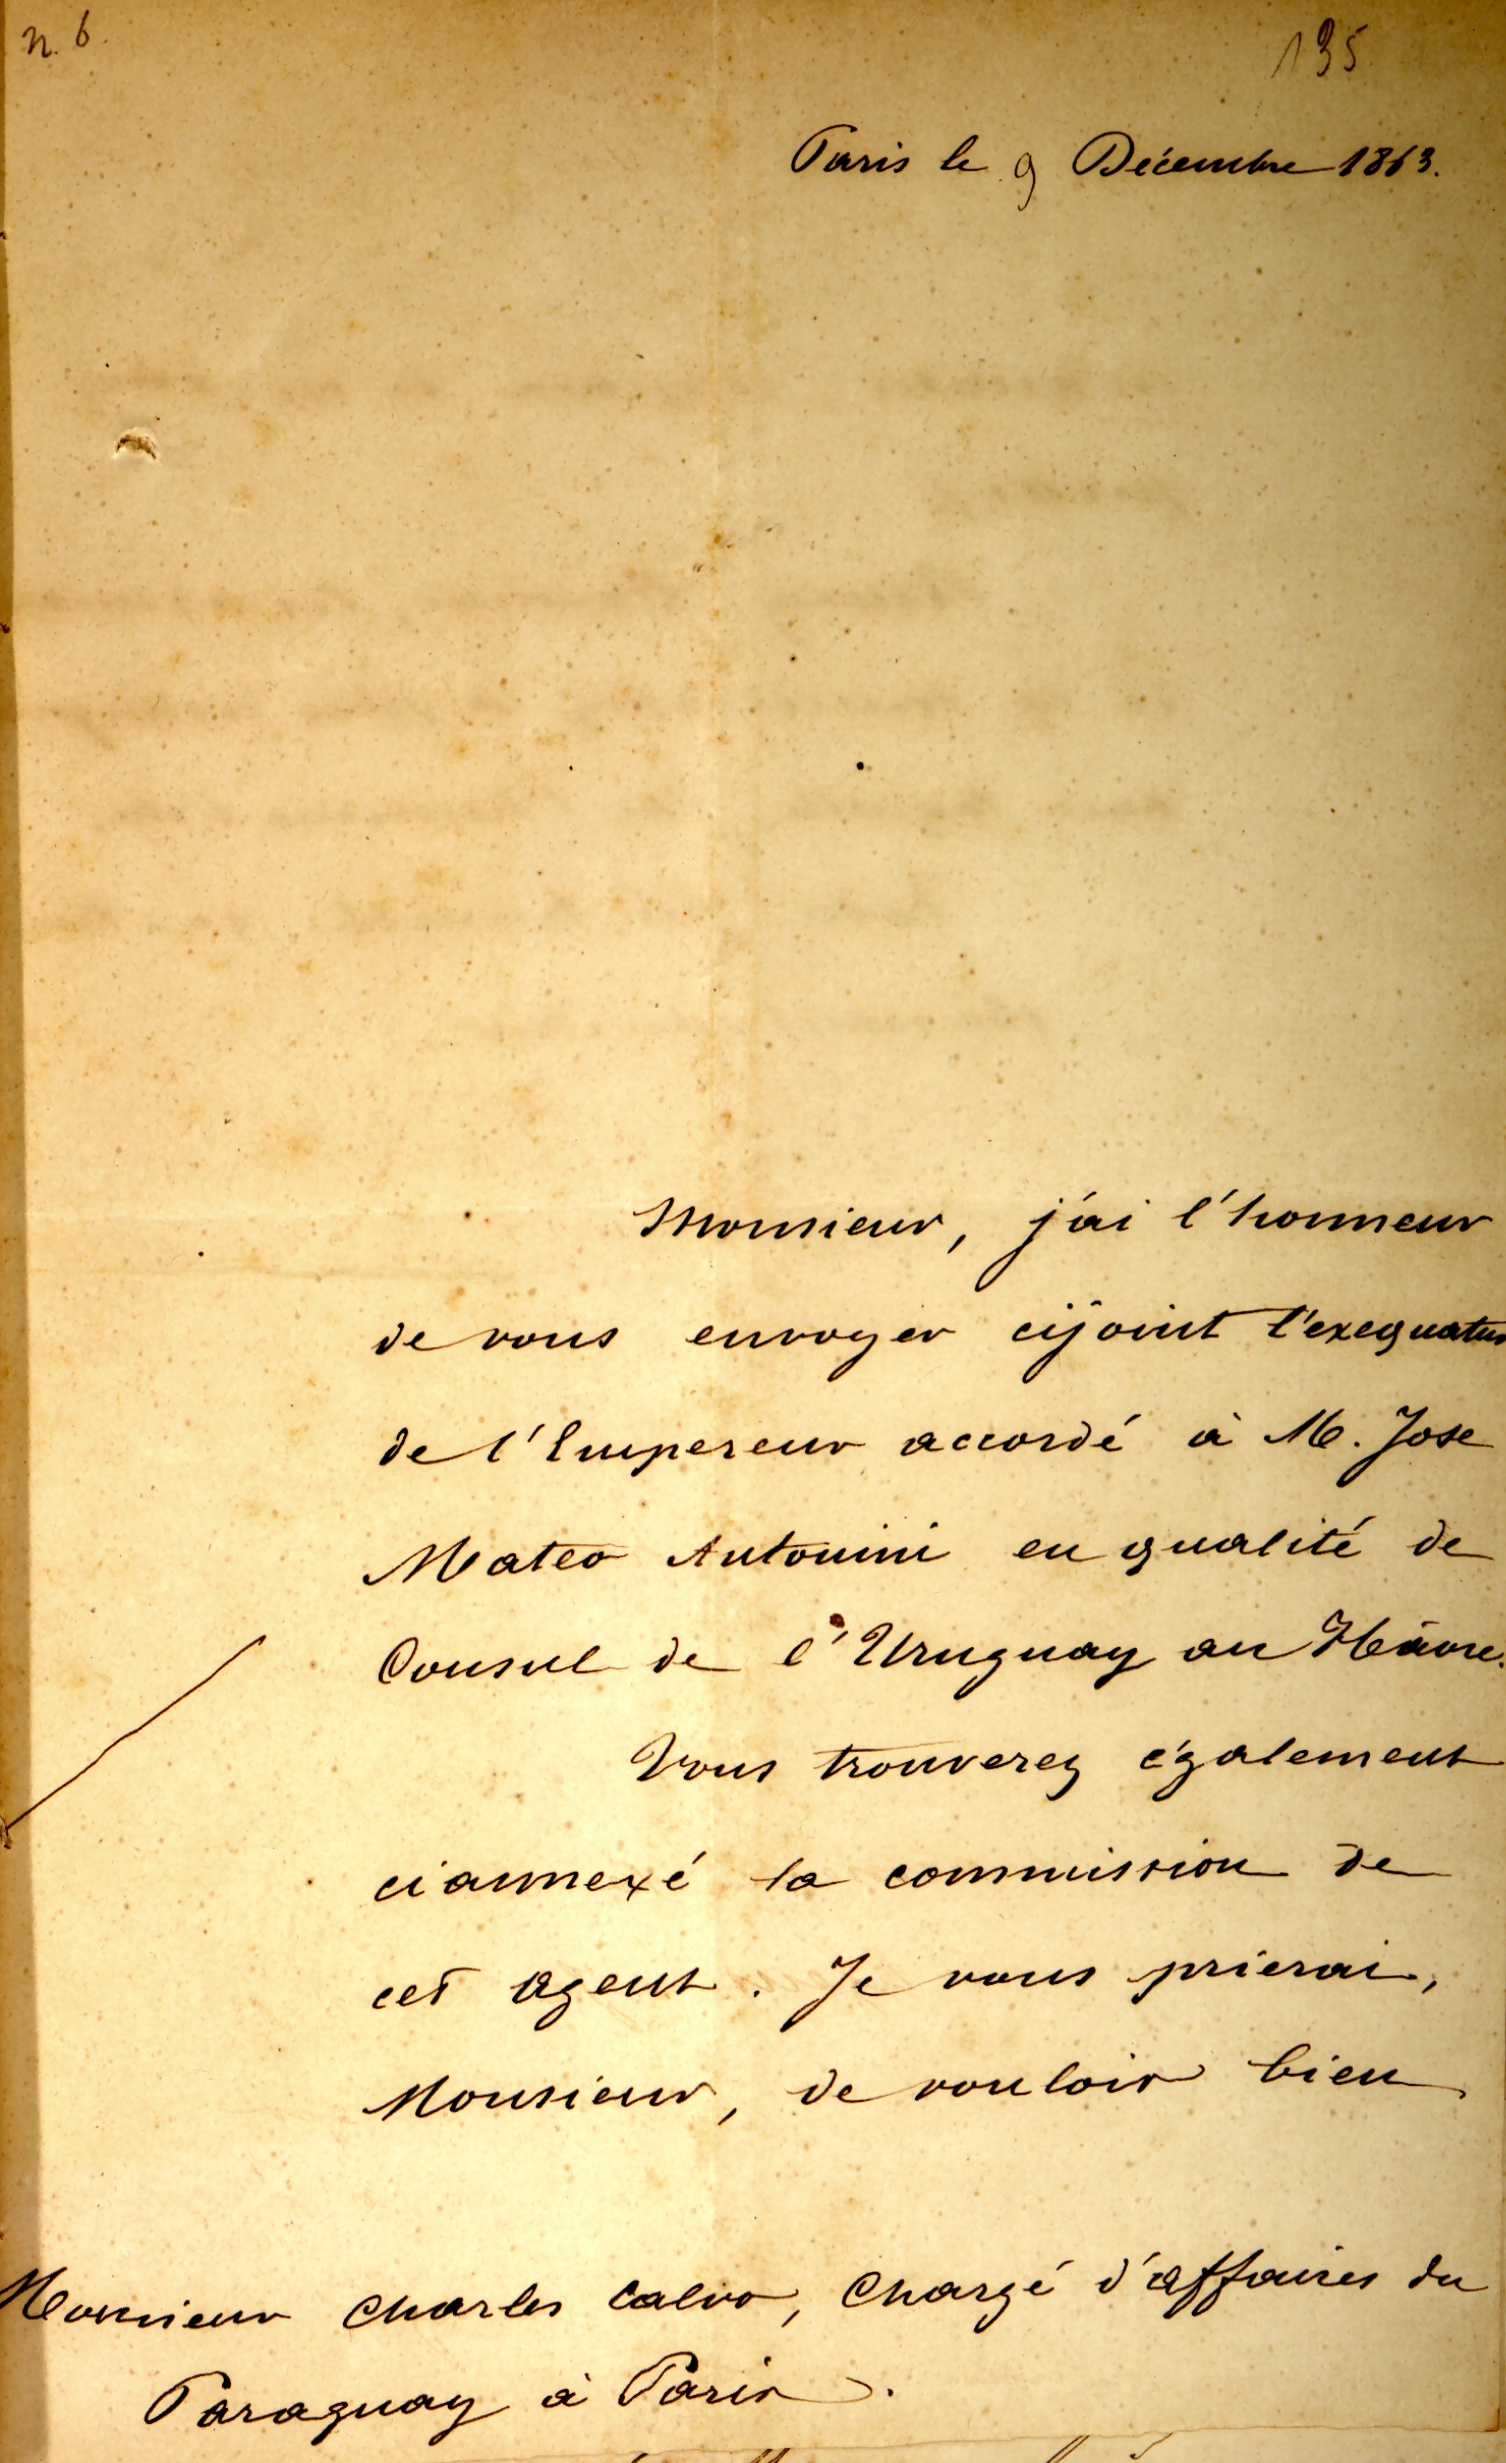 n. 6.
135
Paris le 9 Décembre 1863.
Monsieur, j'ai l'honneur
de vous envoyer cijoint l'exequatur
de l'Empereur accordé à M. Jose
Mateo Antonini en qualité de
Consul de l'Uruguay au Hâvre.
Vous trouverez également
ciannexé la commission de
cet agent. Je vous prierai,
Monsieur, de vouloir bien
Monsieur Charles Calvo, Chargé d'affaires du
Paraguay à Paris.